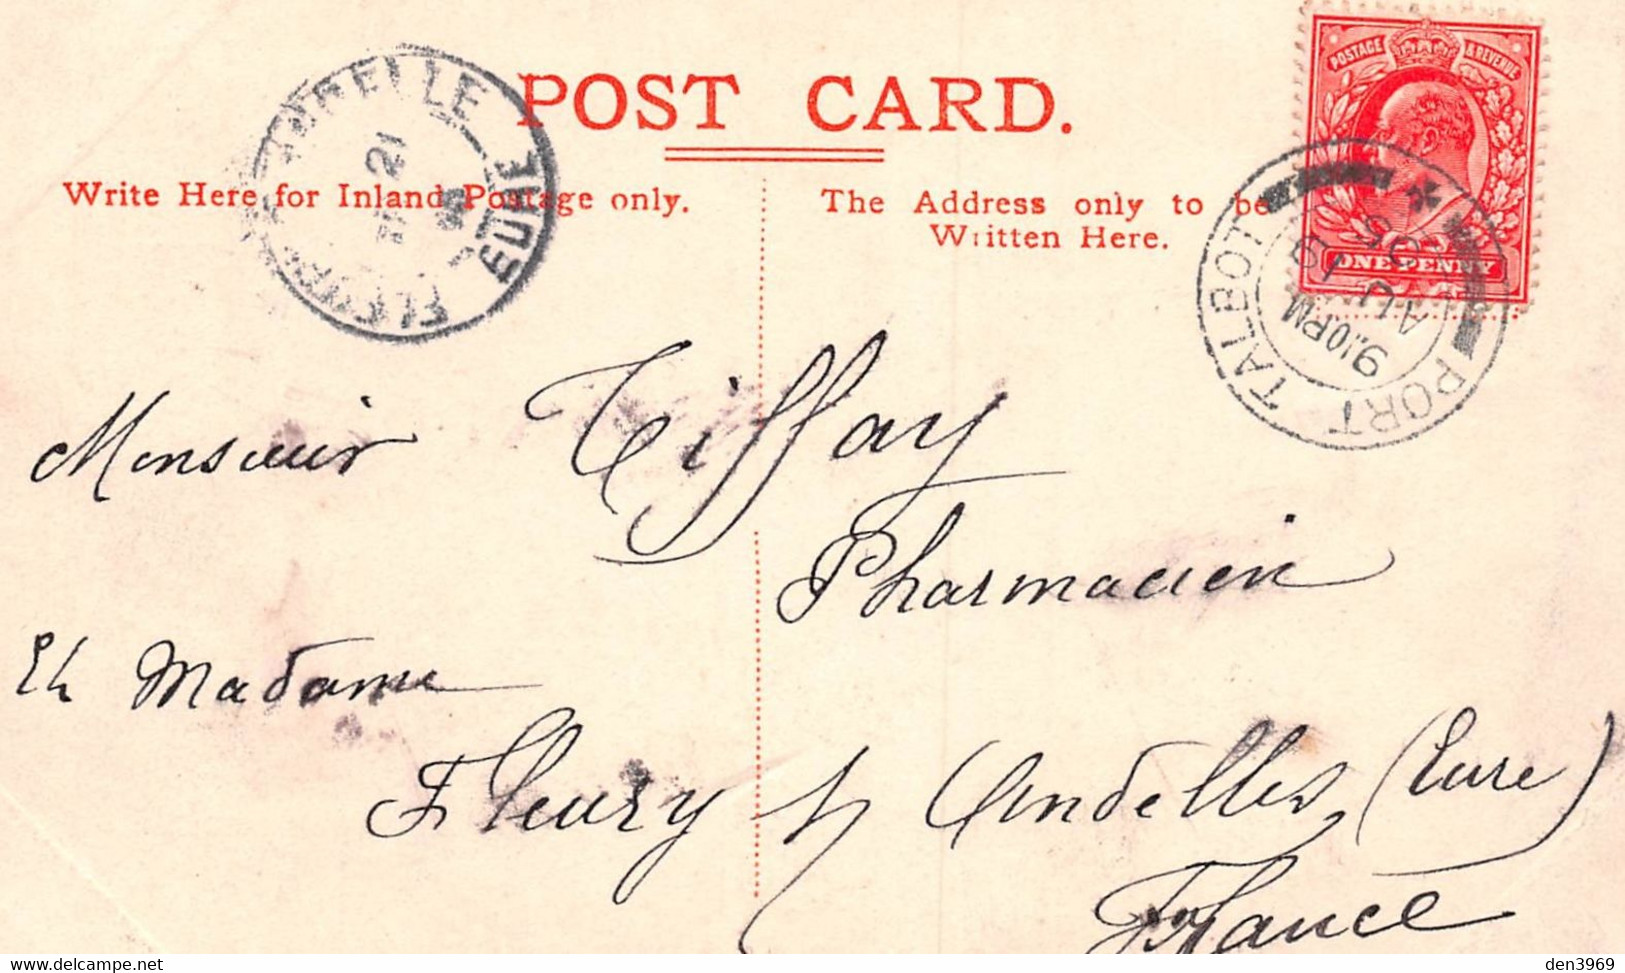 POST CARD.
Write Here for Inland Postage only.
The Address only to be
Written Here.
POSTAGE & REVENUE
ONE PENNY
PORT TALBOT
9.10PM
AU 19
05
ANDELLE
EURE
21
Monsieur Tiffay
Pharmacien
Et Madame
Fleury s/ Andelles, (Eure)
France
den3969